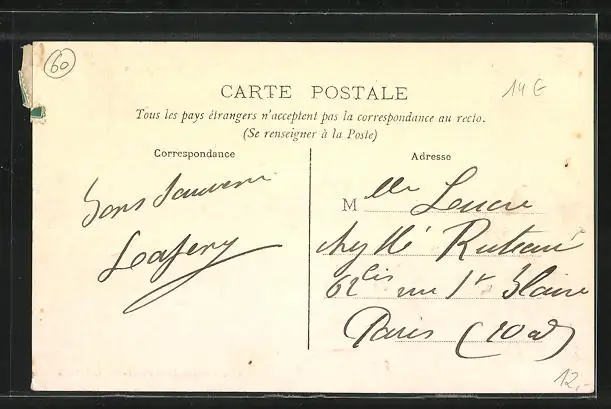 60
14 E
CARTE POSTALE
Tous les pays étrangers n'acceptent pas la correspondance au recto.
(Se renseigner à la Poste)
Correspondance
Adresse
Bons Souvenir
Mlle
chez Mé
62bis rue St Blaise
Paris (20e)
12,-